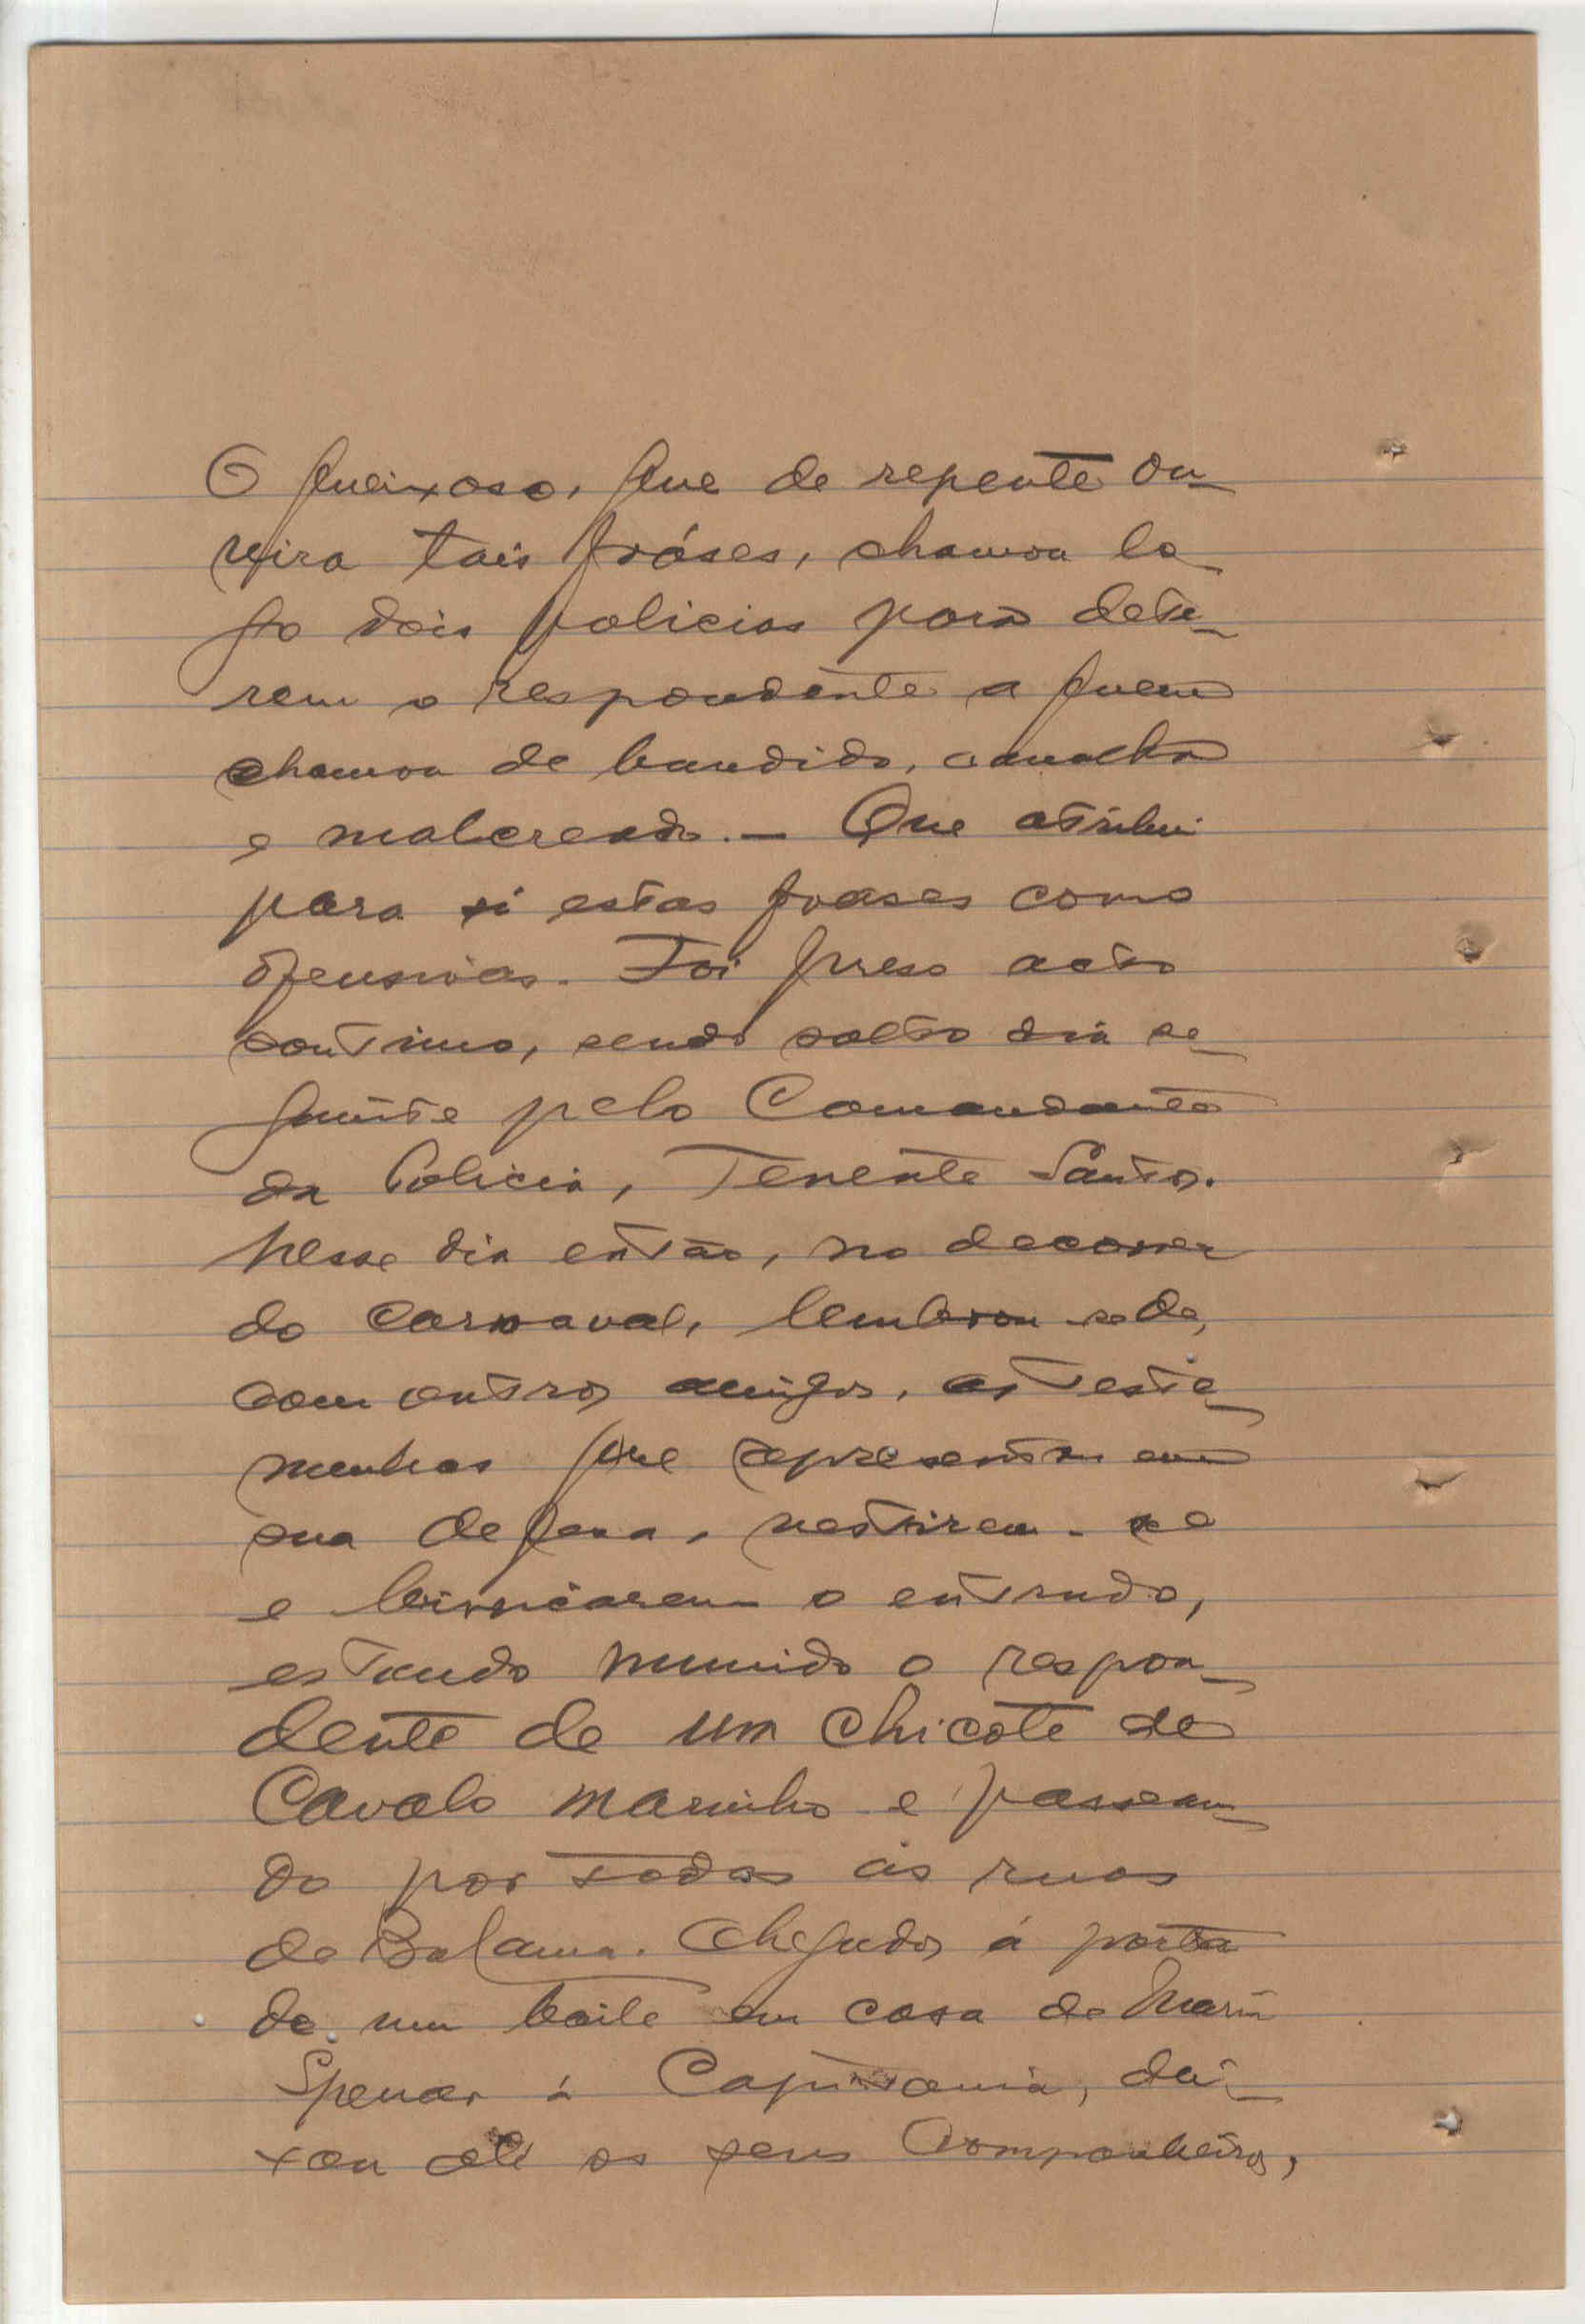 O queixoso, que de repente ou-
vira tais fráses, chamou lo-
go dois policias para dete-
rem o respondente a quem
chamou de bandido, canalha
e malcreado. — Que atribui
para si estas frases como
ofensivas. Foi preso acto
continuo, sendo solto dia se-
guinte pelo Comandante
da Policia, Tenente Santos.
Nesse dia então, no decorrer
do carnaval, lembrou-se de,
com outros amigos, as teste-
munhas que apresenta em
sua defesa, vestirem-se
e brincarem o entrudo,
estando munido o respon-
dente de um chicote de
Cavalo marinho e passean-
do por todas as ruas
de Bolama. Chegados á porta
de um baile em casa de Maria
á Capitania, dei-
xou ali os seus companheiros,